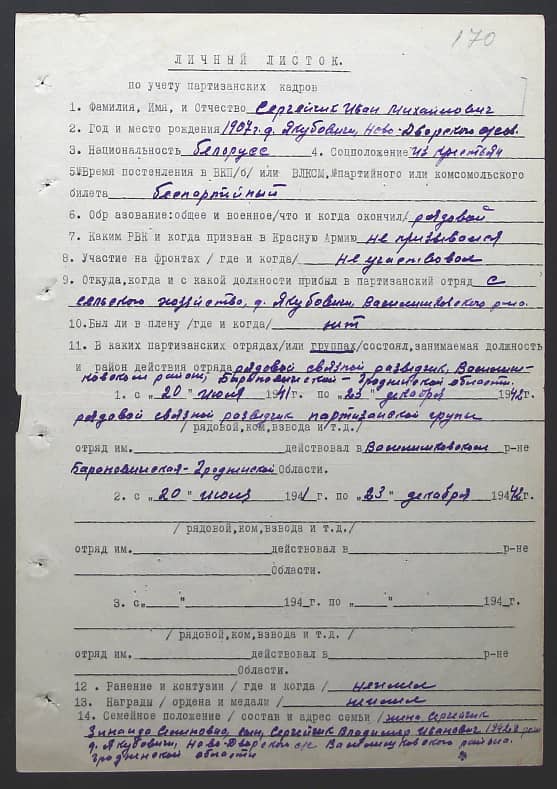 170
ЛИЧНЫЙ ЛИСТОК.
по учету партизанских кадров
1. Фамилия, Имя, и Отчество Сергейчик Иван Михайлович
2. Год и место рождения 1907 г. д. Якубовичи, Ново-Дворского с/сов.
3. Национальность белорусс 4. Соцположение из крестьян
5. Время постепления в ВКП/б/ или ВЛКСМ, партийного или комсомольского
билета беспартийный
6. Обр азование:общее и военное/что и когда окончил/ рядовой
7. Каким РВК и когда призван в Красную Армию не призывался
8. Участие на фронтах / где и когда/ не участвовал
9. Откуда,когда и с какой должности прибыл в партизанский отряд с
сельского хозяйство, д. Якубовичи, Василишковского р-на.
10.Был ли в плену /где и когда/ нет
11. В каких партизанских отрядах/или группах/состоял,занимаемая должность
и район действия отряда рядовой связной разведчик, Василиш-
ковском район, Барановичской - Гродненской области.
1. с "20" июня 1941г. по "23" декабря 1942г.
рядовой связной разведчик партизанской групы
/ рядовой,ком,взвода и т.д. /
отряд им. действовал в Василишковском р-не
Барановичская-Гродненской Области.
2. с "20" июня 1941г. по "23" декабря 1942г.
/ рядовой,ком,взвода и т.д./
отряд им. действовал в р-не
Области.
3. с " " 194 г. по " " 194 г.
/ рядовой,ком,взвода и т.д. /
отряд им. действовал в р-не
Области.
12 . Ранение и контузии / где и когда / неимел
13. Награды / ордена и медали / неимел
14. Семейное положение / состав и адрес семьи / жена Сергейчик
Зинаида Семеновна, сын, Сергейчик Владимир Иванович 1942
д. Якубовичи, Ново-Дворского с/с Василишковского района.
Гродненской области